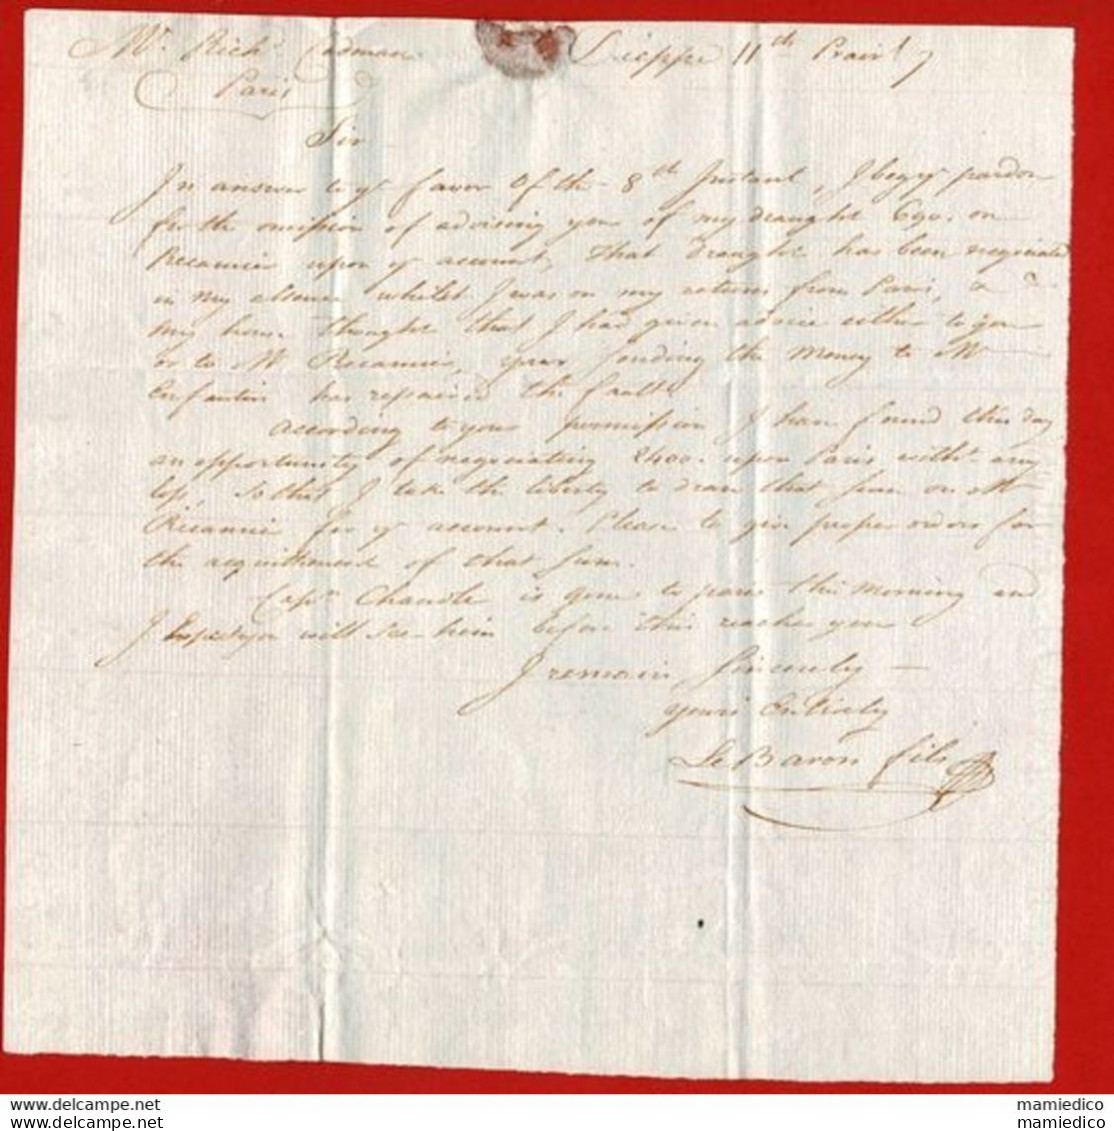 Mr. Richd. Codman Dieppe 11th Prairl 7
Paris
Sir
In answer to yr favor of the 8th Instant, I beg yr pardon
for the omission of advising you of my draught 690. on
Recamier upon yr account, that draught has been negociated
in my absence whilst I was on my return from Paris, &
my house thought that I had given advice either to you
or to Mr Recamier, your sending the money to Mr
Enfantin has repaired the fault.
according to your permission I have found this day
an opportunity of negociating 2400. upon Paris witht any
loss, so that I take the liberty to draw that sum on Mr
Récamier for yr account. Please to give proper orders for
the acquitment of that sum.
Capn. Chandler is gone to paris this morning and
I Expect you will see him before this reaches you
I remain Sincerely
yours Entirely
Le Baron fils
mamiedico
mamiedico
www.delcampe.net
www.delcampe.net